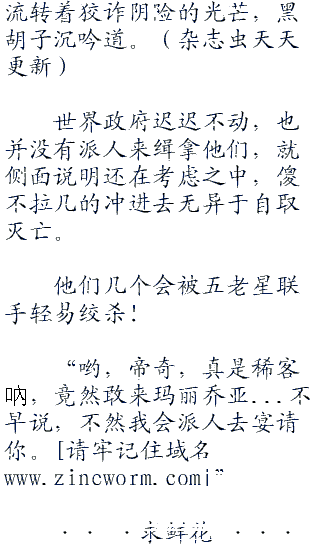 流转着狡诈阴险的光芒，黑
胡子沉吟道。（杂志虫天天
更新）
世界政府迟迟不动，也
并没有派人来缉拿他们，就
侧面说明还在考虑之中，傻
不拉几的冲进去无异于自取
灭亡。
他们几个会被五老星联
手轻易绞杀！
“哟，帝奇，真是稀客
呐，竟然敢来玛丽乔亚...不
早说，不然我会派人去宴请
你。[请牢记住域名
www.zincworm.com]”
· · ·求鲜花 · · ·